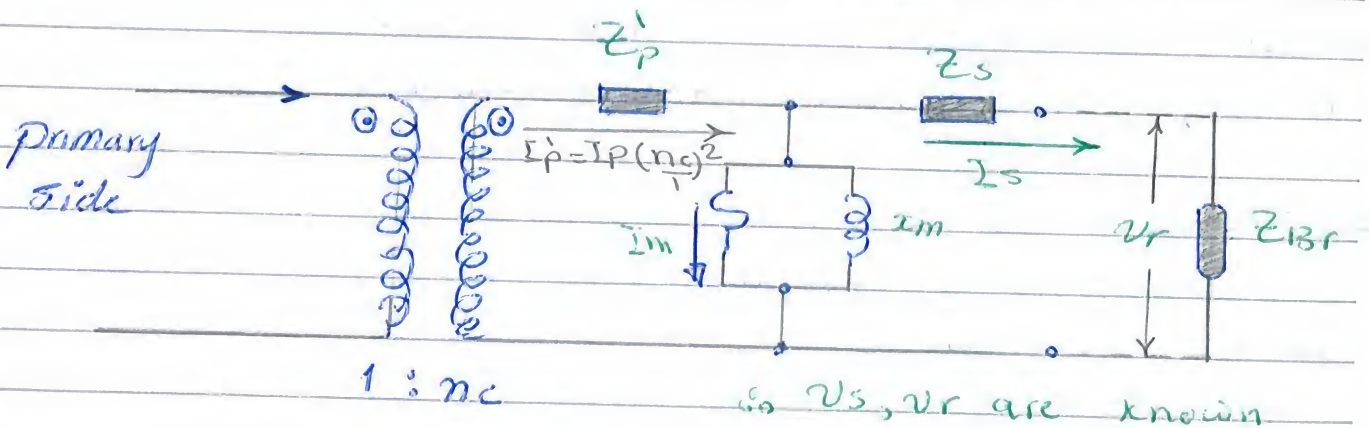 Z'p
Zs
primary
side
I'p = Ip (nc/1)²
Is
Im
xm
vr
ZBr
1 : nc
∴ vs, vr are known